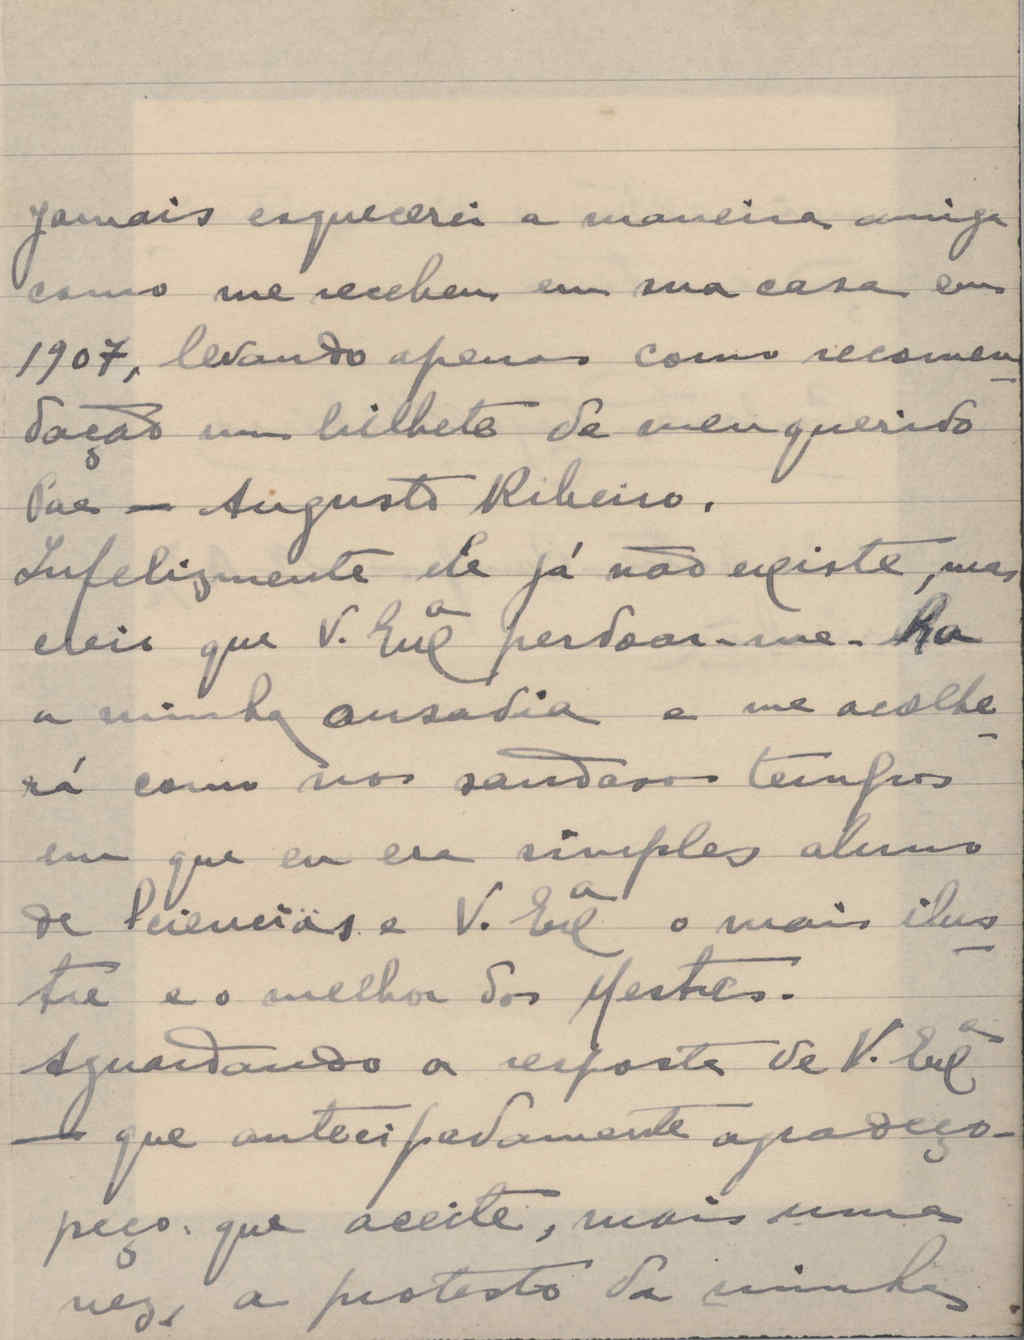 Jamais esquecerei a maneira amiga
como me recebeu em sua casa em
1907, levando apenas como recomen
dação um bilhete de meu querido
Pae — Augusto Ribeiro.
Infelizmente ele já não existe, mas
creio que V. Exª perdoar-me-ha
a minha ousadia e me acolhe
rá como nos saudosos tempos
em que eu era simples aluno
de Sciencias e V. Exª o mais ilus
tre e o melhor dos Mestres.
Aguardando a resposta de V. Exª
— que antecipadamente agradeço —
peço que aceite, mais uma
vez, o protesto da minha